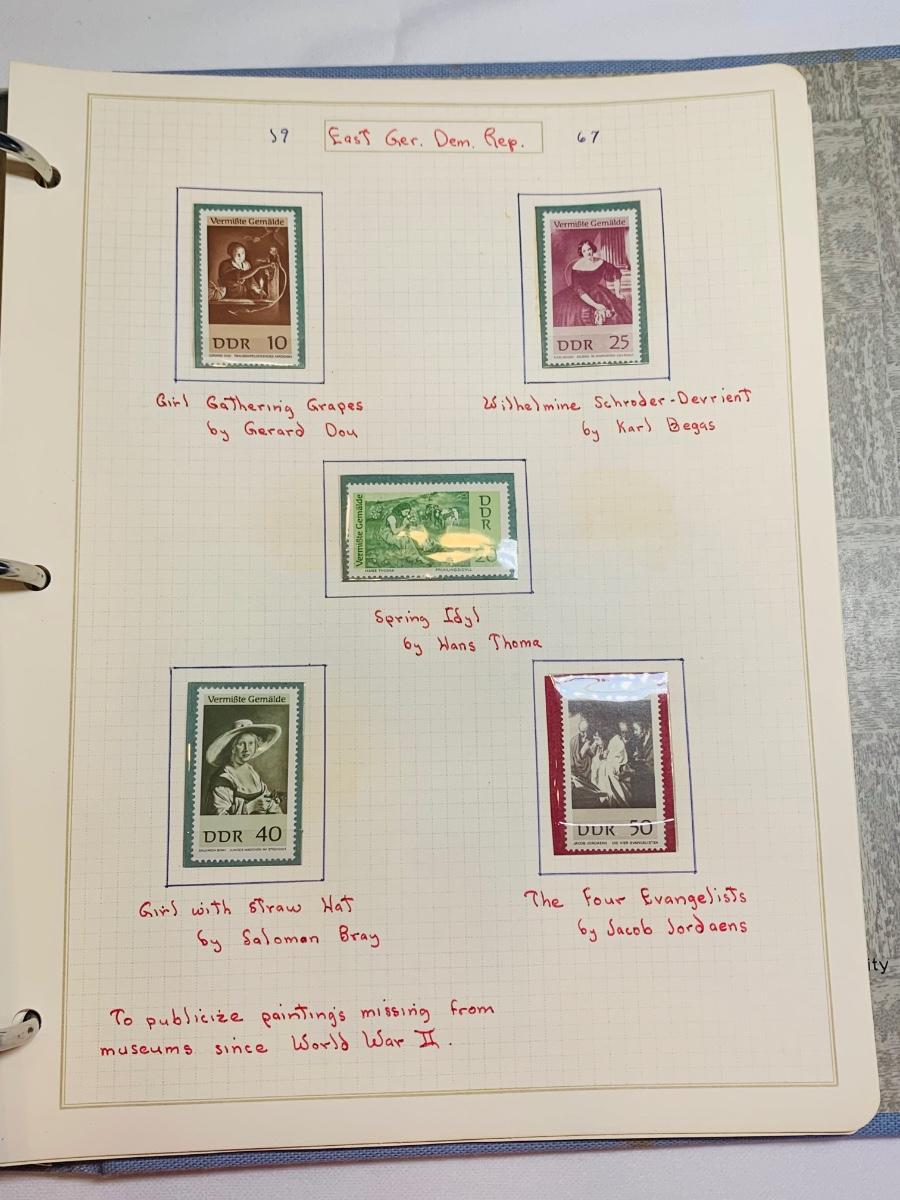 59 East Ger. Dem. Rep. 67
Vermißte Gemälde
DDR 10
Vermißte Gemälde
DDR 25
Girl Gathering Grapes
by Gerard Dou
Wilhelmine Schroder-Devrient
by Karl Begas
Vermißte Gemälde
DDR
HANS THOMA FRÜHLINGSIDYLL
Spring Idyl
by Hans Thoma
Vermißte Gemälde
DDR 40
DDR 50
JACOB JORDAENS DIE VIER EVANGELISTEN
Girl with Straw Hat
by Saloman Bray
The Four Evangelists
by Jacob Jordaens
To publicize paintings missing from
museums since World War II.
ity